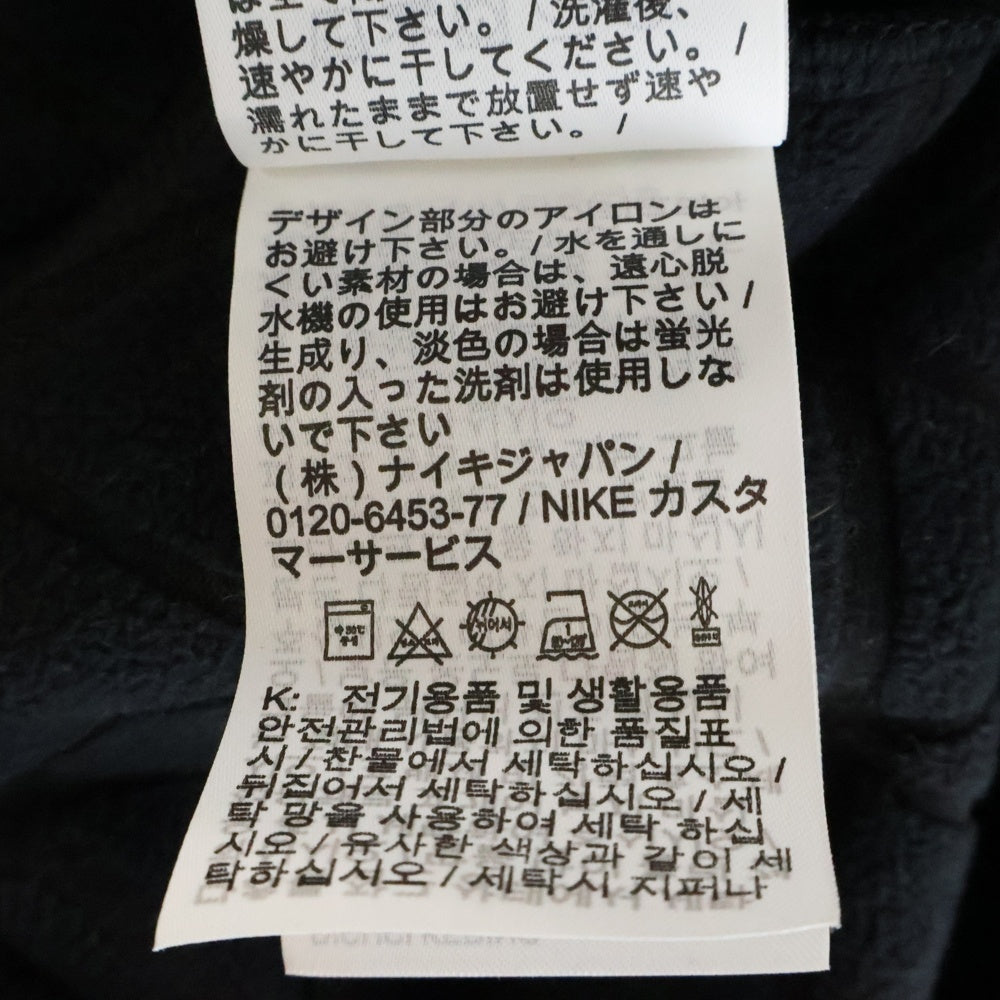 燥して下さい。 / 洗濯後、
速やかに干してください。 /
濡れたままで放置せず速や
かに干して下さい。 /
デザイン部分のアイロンは
お避け下さい。 / 水を通しに
くい素材の場合は、遠心脱
水機の使用はお避け下さい /
生成り、淡色の場合は蛍光
剤の入った洗剤は使用しな
いで下さい
(株)ナイキジャパン /
0120-6453-77 / NIKE カスタ
マーサービス
K: 전기용품 및 생활용품
안전관리법에 의한 품질표
시 / 찬물에서 세탁하십시오 /
뒤집어서 세탁하십시오 / 세
탁 망을 사용하여 세탁 하십
시오 / 유사한 색상과 같이 세
탁하십시오 / 세탁시 지퍼나